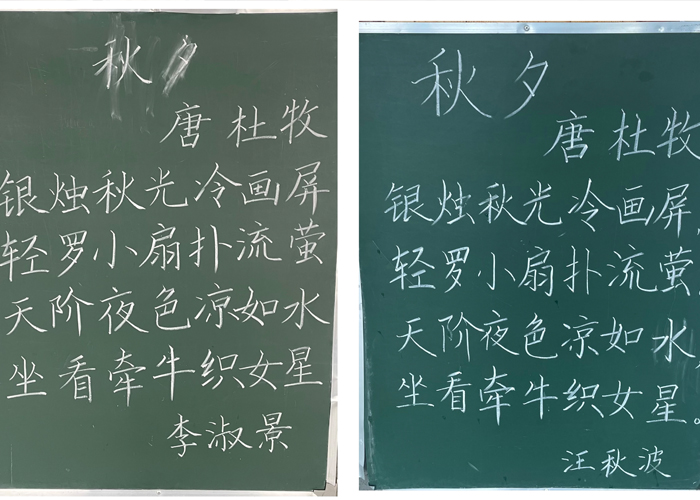 秋夕
唐杜牧
银烛秋光冷画屏
轻罗小扇扑流萤
天阶夜色凉如水
坐看牵牛织女星
李淑景
秋夕
唐杜牧
银烛秋光冷画屏,
轻罗小扇扑流萤。
天阶夜色凉如水,
坐看牵牛织女星。
汪秋波